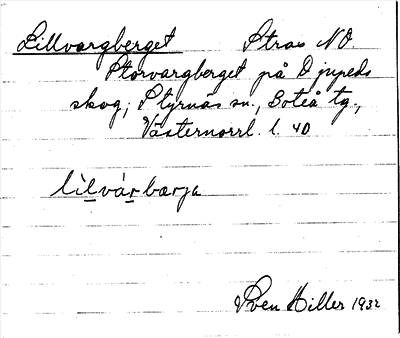 Lillvargberget Strax NO.
Storvargberget på Djupeds
skog, Styrnäs sn., Boteå tg.,
Västernorrl. l. 40
lìlvárbærja
Sven Hiller 1932